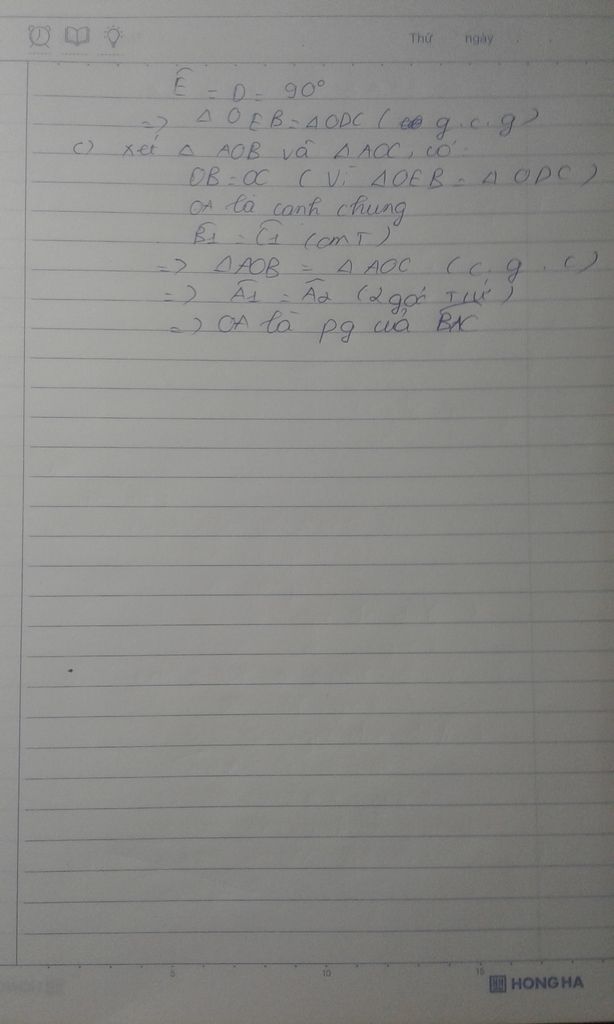 Thứ ngày
Ê = D = 90°
=> Δ OEB = Δ ODC (g.c.g)
c) xét Δ AOB và Δ AOC, có:
OB = OC (Vì Δ OEB = Δ ODC)
OA là cạnh chung
B̂1 = Ĉ1 (cmT)
=> Δ AOB = Δ AOC (c.g.c)
=> Â1 = Â2 (2 góc TƯ)
=> OA là pg của BAC
5 10 15
HONG HA